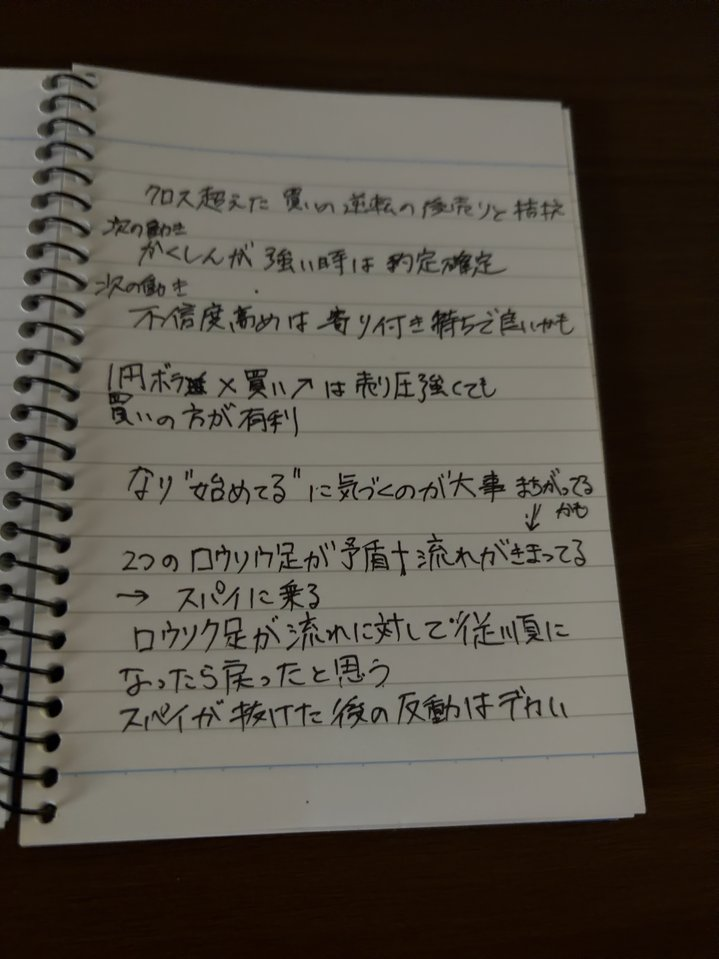 クロス超えた買いの逆転の後売りと拮抗
次の動き
かくしんが強い時は約定確定
次の動き
不信度高めは寄り付き待ちで良いかも
1円ボラ × 買い↗は売り圧強くても
買いの方が有利
なり"始めてる"に気づくのが大事 まちがってる
⇓ かも
2つのロウソク足が矛盾+流れがきまってる
→ スパイに乗る
ロウソク足が流れに対して従順に
なったら戻ったと思う
スパイが抜けた後の反動はデカい